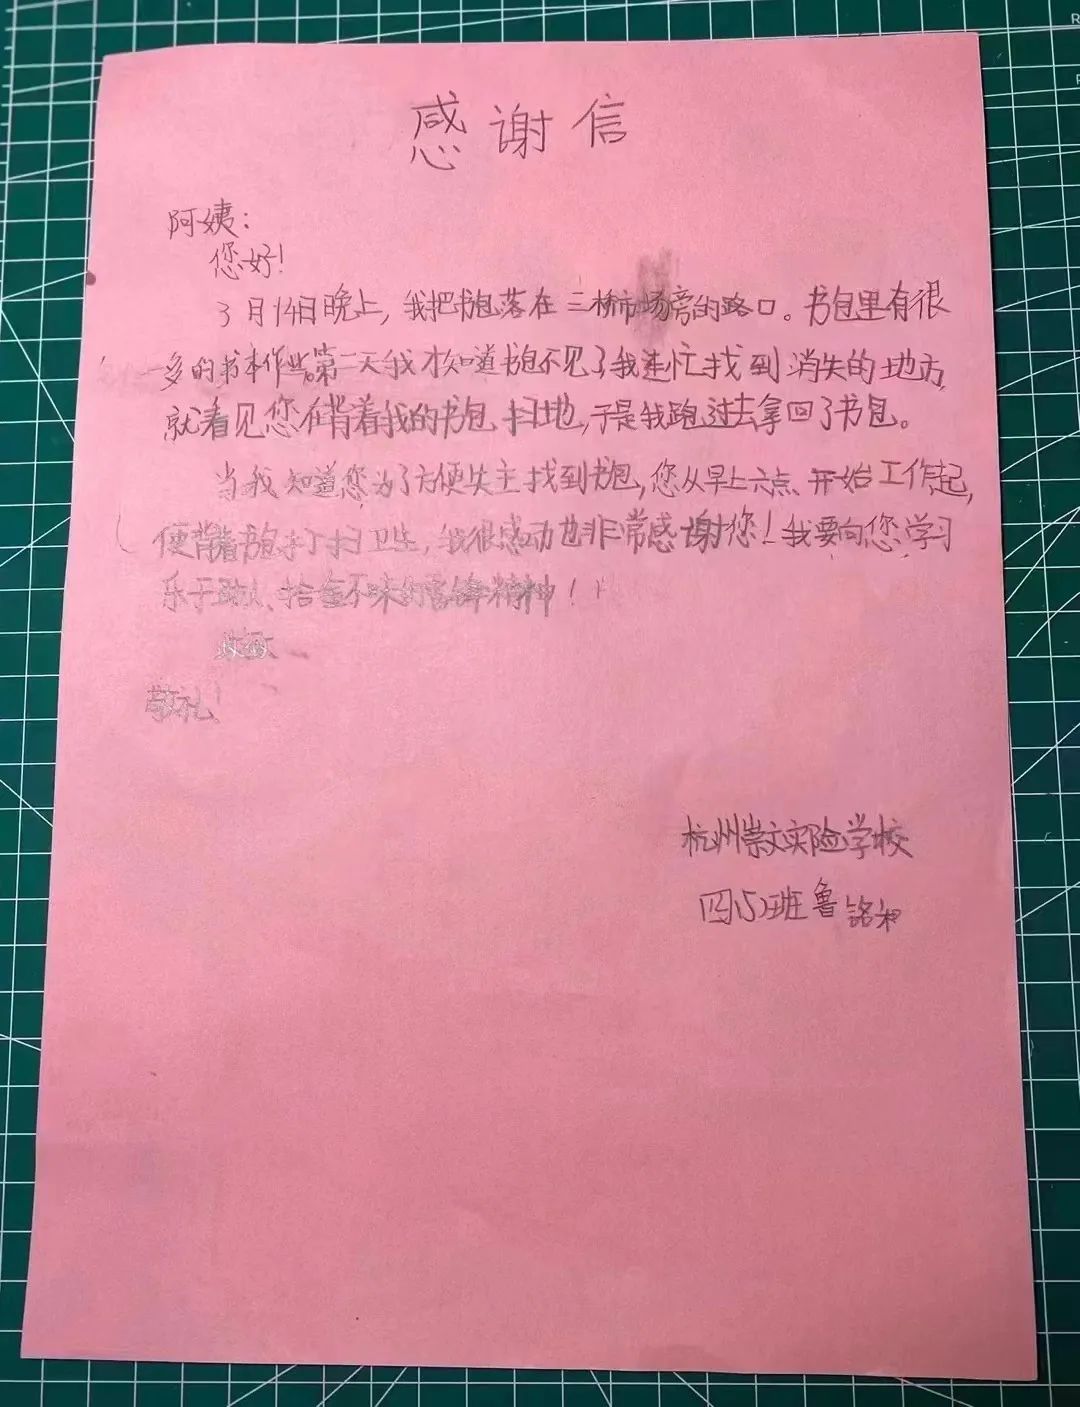 感谢信
阿姨：
您好！
3月14日晚上，我把书包落在三桥市场旁的路口。书包里有很
多的书本作业。第二天我才知道书包不见了我连忙找到消失的地方，
就看见您在背着我的书包扫地，于是我跑过去拿回了书包。
当我知道您为了方便失主找到书包，您从早上六点开始工作起，
便背着书包打扫卫生，我很感动也非常感谢您！我要向您学习
乐于助人、拾金不昧的雷锋精神！
此致
敬礼！
杭州崇文实验学校
四(5)班鲁铭